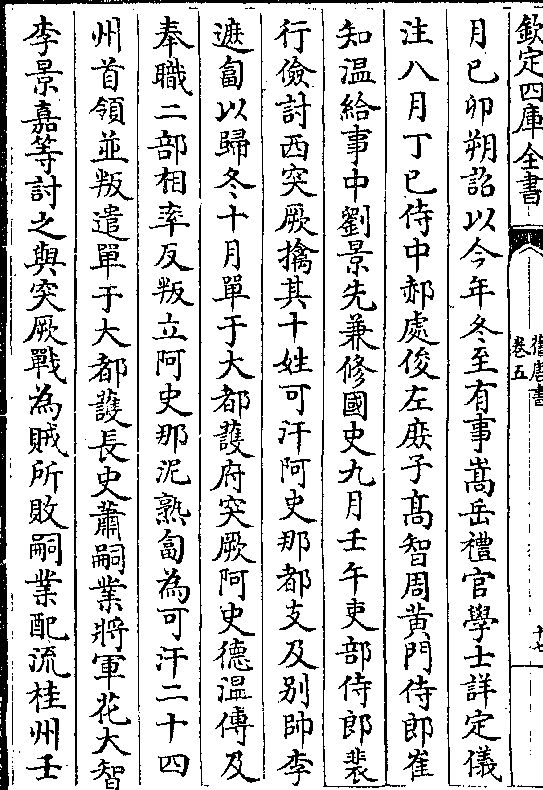 欽定四庫全書
舊唐書
卷五
十七
月己卯朔詔以今年冬至有事嵩岳禮官學士詳定儀
注八月丁巳侍中郝處俊左庻子髙智周黄門侍郎崔
知温給事中劉景先兼修國史九月壬午吏部侍郎裴
行儉討西突厥擒其十姓可汗阿史那都支及别帥李
遮匐以歸冬十月單于大都護府突厥阿史德温傅及
奉職二部相率反叛立阿史那泥熟匐為可汗二十四
州首領並叛遣單于大都護長史蕭嗣業將軍花大智
李景嘉等討之與突厥戰為賊所敗嗣業配流桂州壬